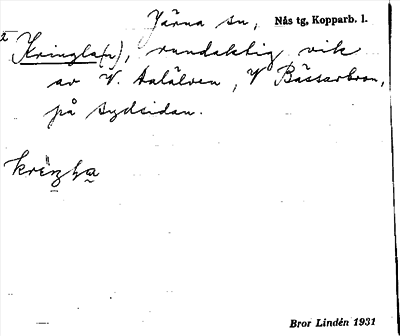 Järna sn, Nås tg, Kopparb. l.
Kringla(n), rundaktig vik
av V. Dalälven, V Bässarbron,
på sydsidan.
Bror Lindén 1931